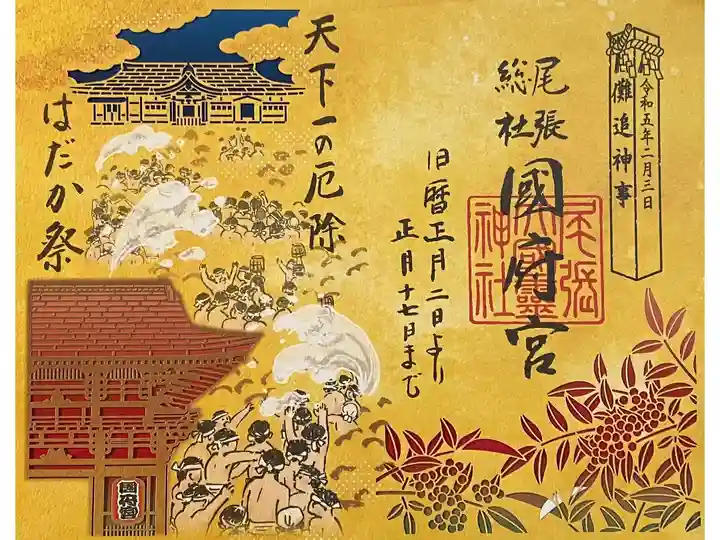 令和五年二月三日
儺追神事
尾張
総社
國府宮
旧暦正月二日より
正月十七日まで
天下一の厄除
はだか祭
國府宮